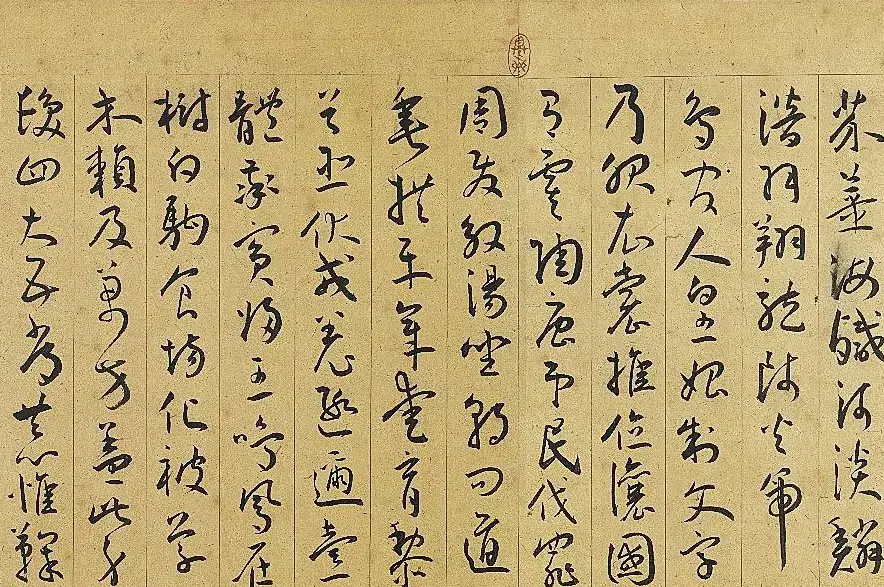 芥薑海鹹河淡鱗
潛羽翔龍師火帝
鳥官人皇始制文字
乃服衣裳推位讓國
有虞陶唐弔民伐罪
周發殷湯坐朝問道
垂拱平章愛育黎
首臣伏戎羌遐邇壹
體率賓歸王鳴鳳在
樹白駒食場化被草
木賴及萬方蓋此身
髮四大五常恭惟鞠